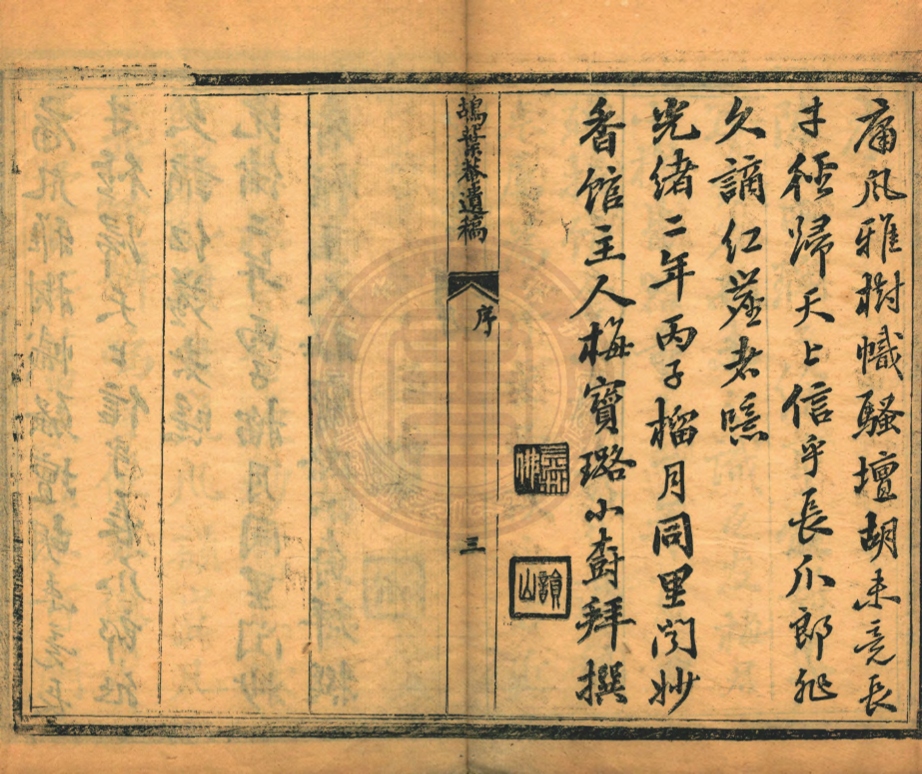 風雅樹幟騷壇胡未竟長
才徑歸天上信乎長爪郎非
久謫紅塵者噫
光緒二年丙子榴月同里聞妙
香館主人梅寶璐小樹拜撰
葉菴遺稿
序
三